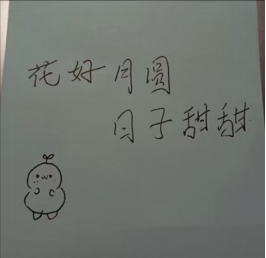 花好月圆
日子甜甜